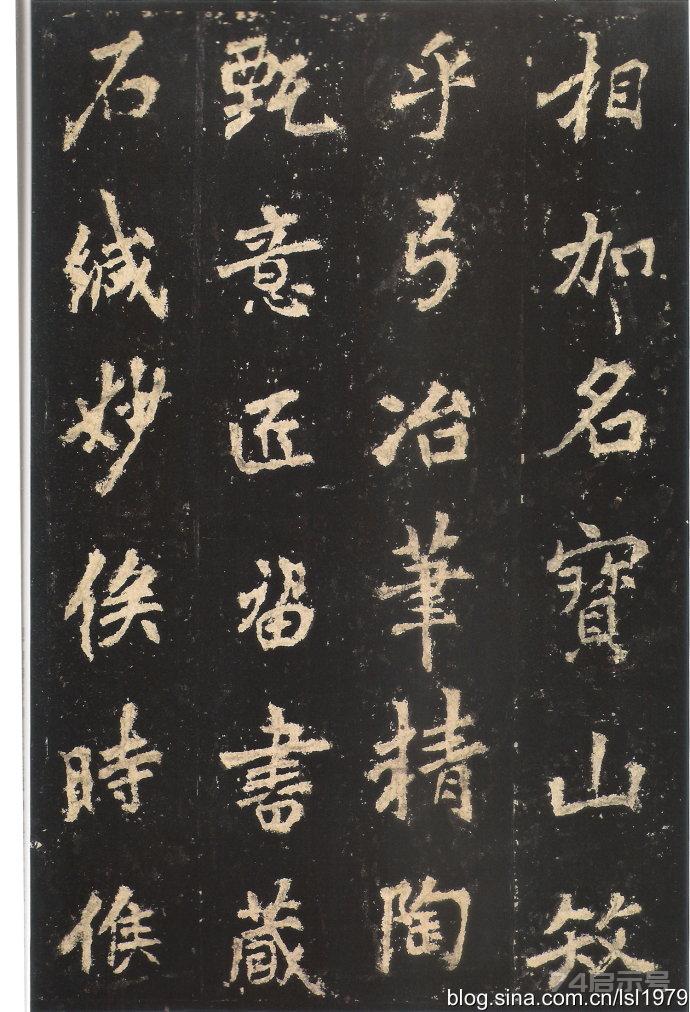 相加名寶山
乎弓冶筆精陶
甄意匠留書藏
石緘妙俟時
74启示号
blog.sina.com.cn/lsl1979